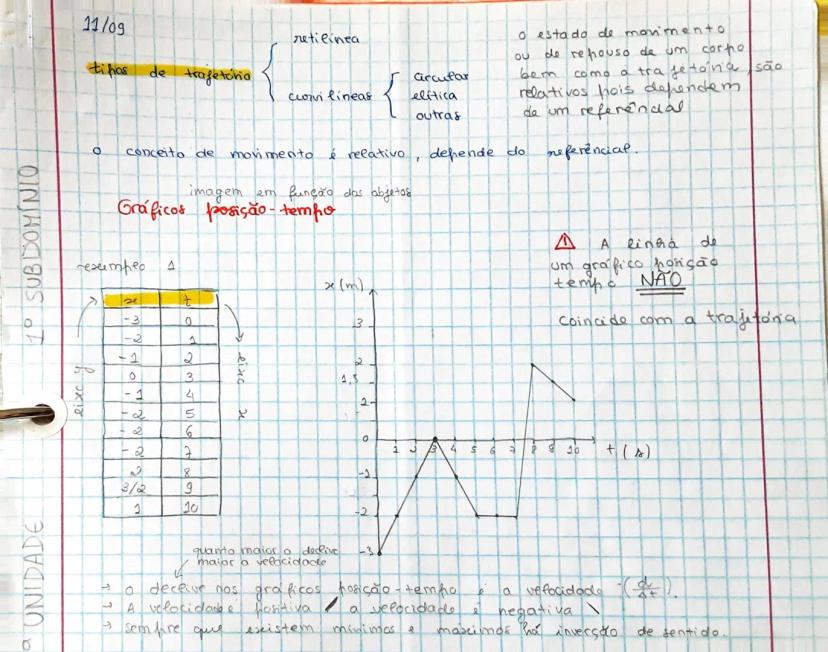 11/09
retilínea
tipos de trajetória
curvilíneas
circular
elítica
outras
o estado de movimento
ou de repouso de um corpo
bem como a trajetória, são
relativos pois dependem
de um referêncial
o conceito de movimento é relativo, depende do referêncial.
imagem em função dos objetos
Gráficos posição-tempo
A linha de
um gráfico posição
tempo NÃO
coincide com a trajetória
exemplo 1
x t
-3 0
-2 1
-1 2
0 3
-1 4
-2 5
-2 6
-2 7
2 8
3/2 9
1 10
eixo y
eixo x
x (m)
3
2
1,5
1
0
-1
-2
-3
1 2 3 4 5 6 7 8 9 10
t (s)
quanto maior o declive
maior a velocidade
→ o declive nos gráficos posição-tempo é a velocidade
→ A velocidade positiva / a velocidade é negativa \
→ sempre que existem mínimos e máximos há inversão de sentido.
1º SUBDOMÍNIO
UNIDADE